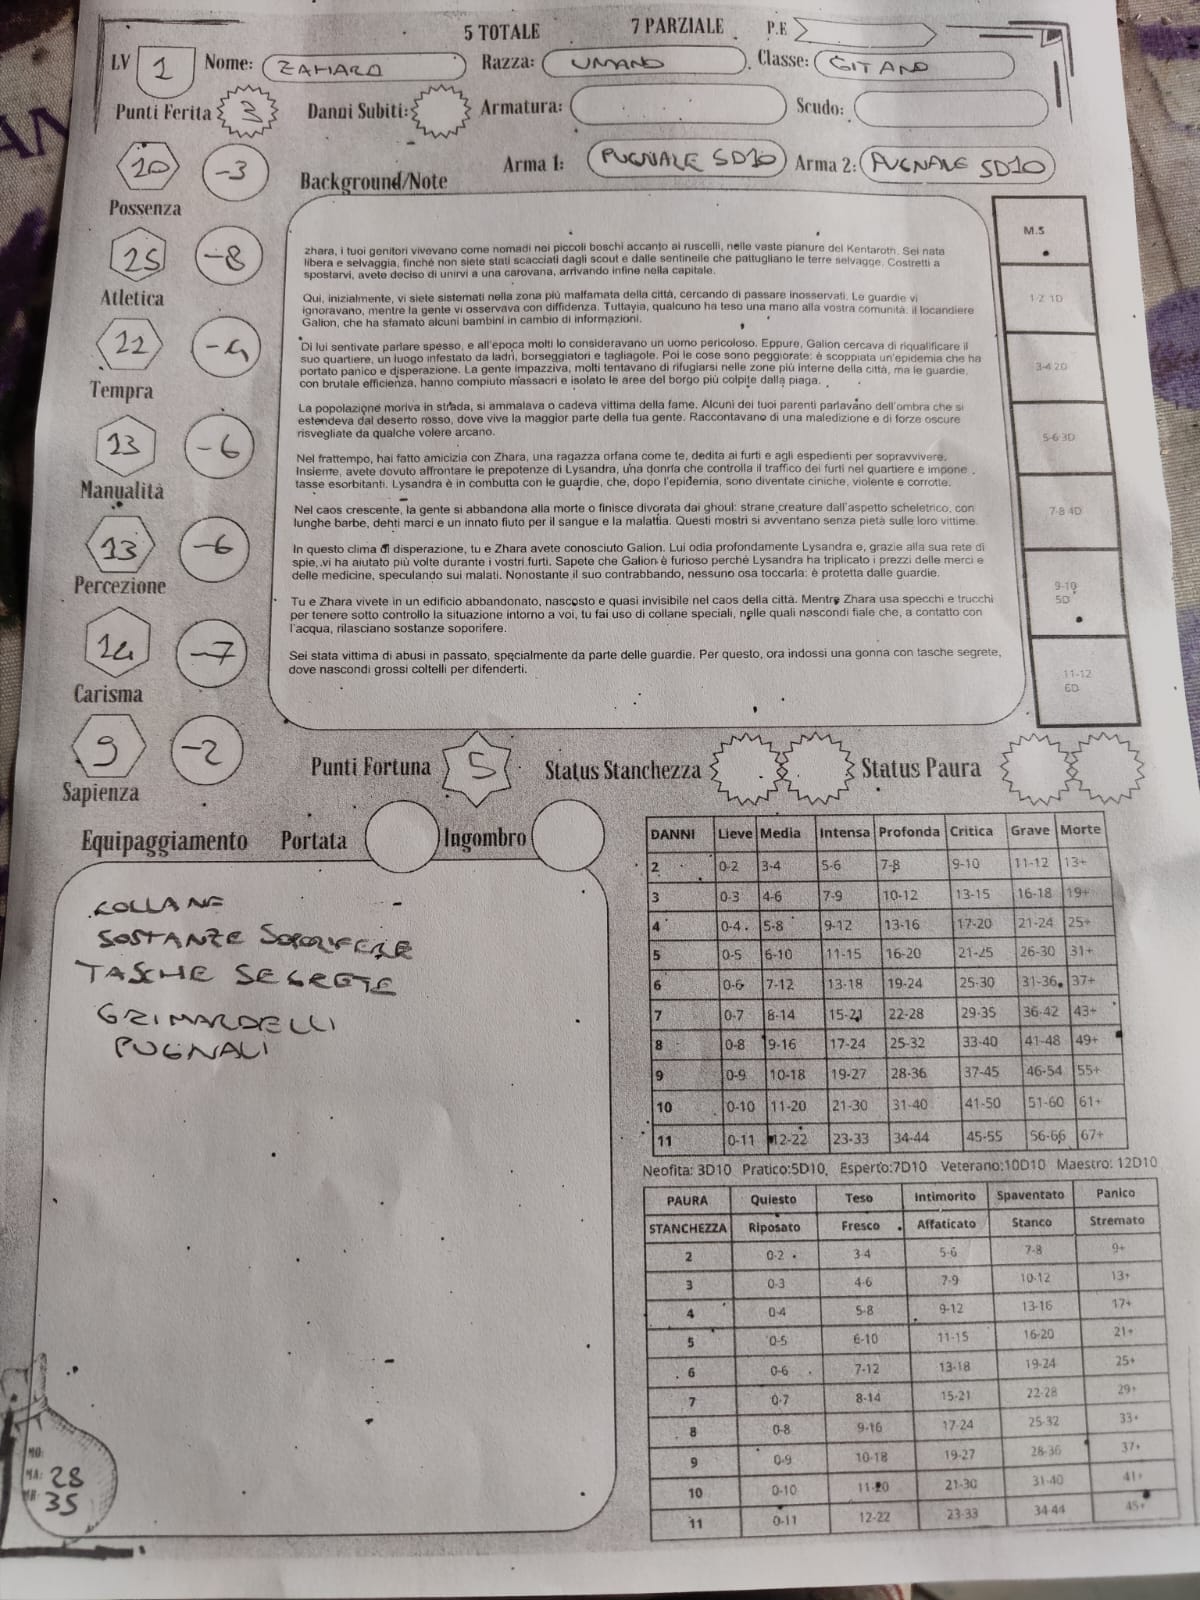 5 TOTALE 7 PARZIALE P.E
LV 1 Nome: ZAHARA Razza: UMANO Classe: GITANO
Punti Ferita 3 Danni Subiti: Armatura: Scudo:
Arma 1: PUGNALE 5D10 Arma 2: PUGNALE 5D10
20 -3
Possenza
25 -8
Atletica
22
Tempra
23 -6
Manualità
23 -6
Percezione
-7
Carisma
9 -2
Sapienza
Background/Note
zhara, i tuoi genitori vivevano come nomadi nei piccoli boschi accanto ai ruscelli, nelle vaste pianure del Kentaroth. Sei nata
libera e selvaggia, finché non siete stati scacciati dagli scout e dalle sentinelle che pattugliano le terre selvagge. Costretti a
spostarvi, avete deciso di unirvi a una carovana, arrivando infine nella capitale.
Qui, inizialmente, vi siete sistemati nella zona più malfamata della città, cercando di passare inosservati. Le guardie vi
ignoravano, mentre la gente vi osservava con diffidenza. Tuttavia, qualcuno ha teso una mano alla vostra comunità: il locandiere
Galion, che ha sfamato alcuni bambini in cambio di informazioni.
Di lui sentivate parlare spesso, e all'epoca molti lo consideravano un uomo pericoloso. Eppure, Galion cercava di riqualificare il
suo quartiere, un luogo infestato da ladri, borseggiatori e tagliagole. Poi le cose sono peggiorate: è scoppiata un'epidemia che ha
portato panico e disperazione. La gente impazziva, molti tentavano di rifugiarsi nelle zone più interne della città, ma le guardie,
con brutale efficienza, hanno compiuto massacri e isolato le aree del borgo più colpite dalla piaga.
La popolazione moriva in strada, si ammalava o cadeva vittima della fame. Alcuni dei tuoi parenti parlavano dell'ombra che si
estendeva dal deserto rosso, dove vive la maggior parte della tua gente. Raccontavano di una maledizione e di forze oscure
risvegliate da qualche volere arcano.
Nel frattempo, hai fatto amicizia con Zhara, una ragazza orfana come te, dedita ai furti e agli espedienti per sopravvivere.
Insieme, avete dovuto affrontare le prepotenze di Lysandra, una donna che controlla il traffico dei furti nel quartiere e impone
tasse esorbitanti. Lysandra è in combutta con le guardie, che, dopo l'epidemia, sono diventate ciniche, violente e corrotte.
Nel caos crescente, la gente si abbandona alla morte o finisce divorata dai ghoul: strane creature dall'aspetto scheletrico, con
lunghe barbe, denti marci e un innato fiuto per il sangue e la malattia. Questi mostri si avventano senza pietà sulle loro vittime.
In questo clima di disperazione, tu e Zhara avete conosciuto Galion. Lui odia profondamente Lysandra e, grazie alla sua rete di
spie, vi ha aiutato più volte durante i vostri furti. Sapete che Galion è furioso perché Lysandra ha triplicato i prezzi delle merci e
delle medicine, speculando sui malati. Nonostante il suo contrabbando, nessuno osa toccarla: è protetta dalle guardie.
Tu e Zhara vivete in un edificio abbandonato, nascosto e quasi invisibile nel caos della città. Mentre Zhara usa specchi e trucchi
per tenere sotto controllo la situazione intorno a voi, tu fai uso di collane speciali, nelle quali nascondi fiale che, a contatto con
l'acqua, rilasciano sostanze soporifere.
Sei stata vittima di abusi in passato, specialmente da parte delle guardie. Per questo, ora indossi una gonna con tasche segrete,
dove nascondi grossi coltelli per difenderti.
M.S
1-2 1D
3-4 2D
5-6 3D
7-8 4D
9-10
5D
11-12
6D
Punti Fortuna 5 Status Stanchezza Status Paura
Equipaggiamento Portata Ingombro
COLLANE
SOSTANZE SOPORIFERE
TASCHE SEGRETE
GRIMARDELLI
PUGNALI
MO:
MA: 28
MR: 35
DANNI Lieve Media Intensa Profonda Critica Grave Morte
2 0-2 3-4 5-6 7-8 9-10 11-12 13+
3 0-3 4-6 7-9 10-12 13-15 16-18 19+
4 0-4 5-8 9-12 13-16 17-20 21-24 25+
5 0-5 6-10 11-15 16-20 21-25 26-30 31+
6 0-6 7-12 13-18 19-24 25-30 31-36 37+
7 0-7 8-14 15-21 22-28 29-35 36-42 43+
8 0-8 9-16 17-24 25-32 33-40 41-48 49+
9 0-9 10-18 19-27 28-36 37-45 46-54 55+
10 0-10 11-20 21-30 31-40 41-50 51-60 61+
11 0-11 12-22 23-33 34-44 45-55 56-66 67+
Neofita: 3D10 Pratico:5D10, Esperto:7D10 Veterano:10D10 Maestro: 12D10
PAURA Quiesto Teso Intimorito Spaventato Panico
STANCHEZZA Riposato Fresco Affaticato Stanco Stremato
2 0-2 3-4 5-6 7-8 9+
3 0-3 4-6 7-9 10-12 13+
4 0-4 5-8 9-12 13-16 17+
5 0-5 6-10 11-15 16-20 21+
6 0-6 7-12 13-18 19-24 25+
7 0-7 8-14 15-21 22-28 29+
8 0-8 9-16 17-24 25-32 33+
9 0-9 10-18 19-27 28-36 37+
10 0-10 11-20 21-30 31-40 41+
11 0-11 12-22 23-33 34-44 45+